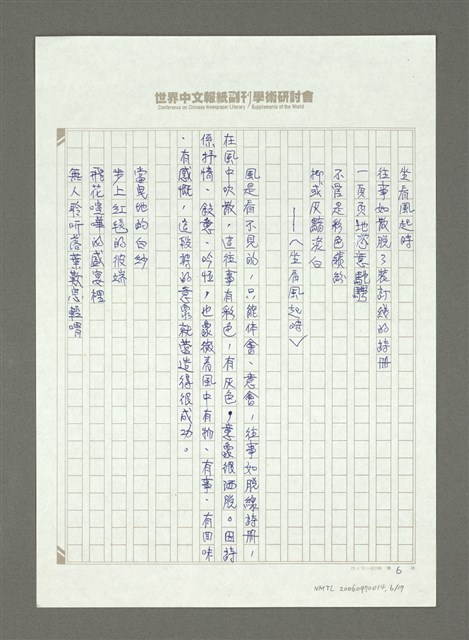 世界中文報紙副刊學術研討會
Conference on Chinese Newspaper Literary Supplements of the World
坐看風起時
往事如散脫了裝訂線的詩冊
一頁頁地隨意馳騁
不管是彩色繽紛
抑或灰黯淡白
——〈坐看風起時〉
風是看不見的，只能体會、意會，往事如脫線詩冊，
在風中吹散，這往事有彩色，有灰色，意象很洒脫。因詩
係抒情、敘意、吟怀，也象徵着風中有物、有事、有回味
、有感慨，這段詩的意象就營造得很成功。
當曳地的白紗
步上紅毯的彼端
飛花喧嘩的盛宴裡
無人聆听落葉歎息輕喟
第 6
NMTL 20060490014, 6/19